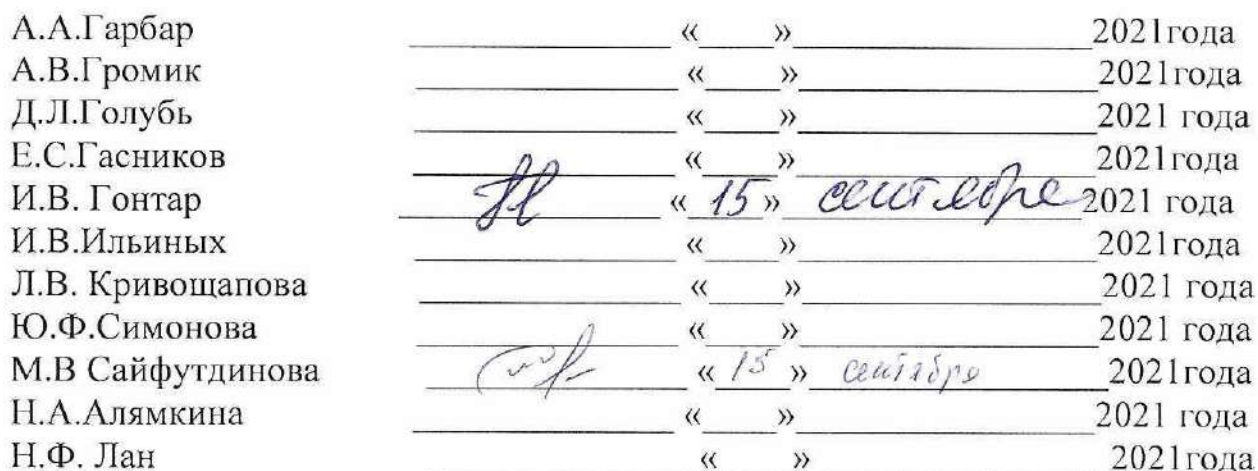 А.А.Гарбар «   » 2021года
А.В.Громик «   » 2021года
Д.Л.Голубь «   » 2021 года
Е.С.Гасников «   » 2021года
И.В. Гонтар « 15 » сентября 2021 года
И.В.Ильиных «   » 2021года
Л.В. Кривощапова «   » 2021 года
Ю.Ф.Симонова «   » 2021 года
М.В Сайфутдинова « 15 » сентября 2021года
Н.А.Алямкина «   » 2021 года
Н.Ф. Лан «   » 2021года